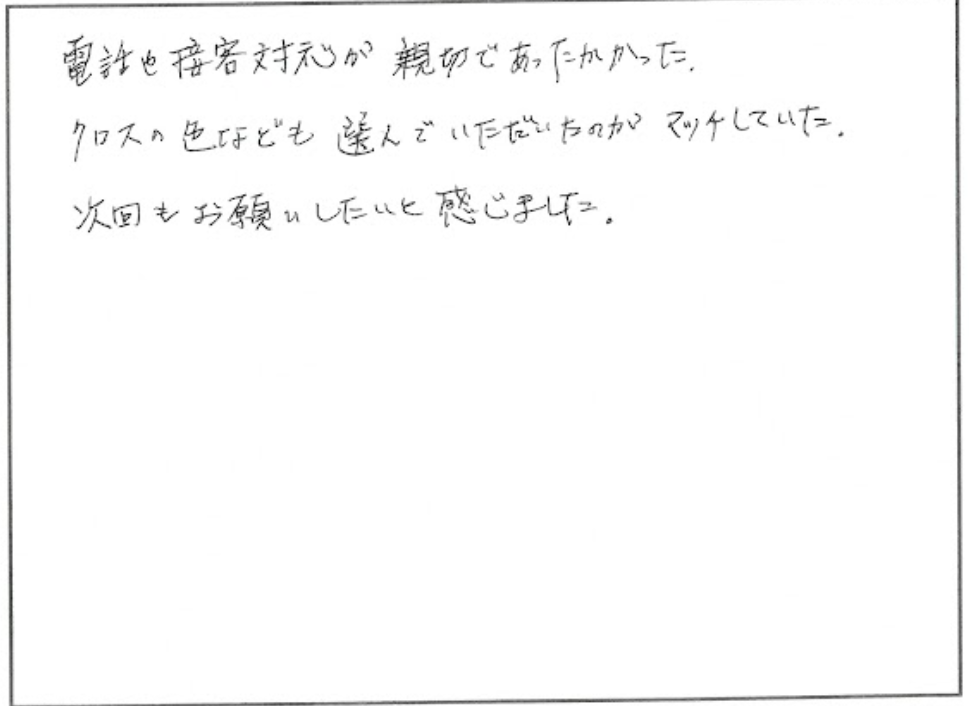 電話や接客対応が親切であったかかった。
クロスの色なども選んでいただいたのがマッチしていた。
次回もお願いしたいと感じました。